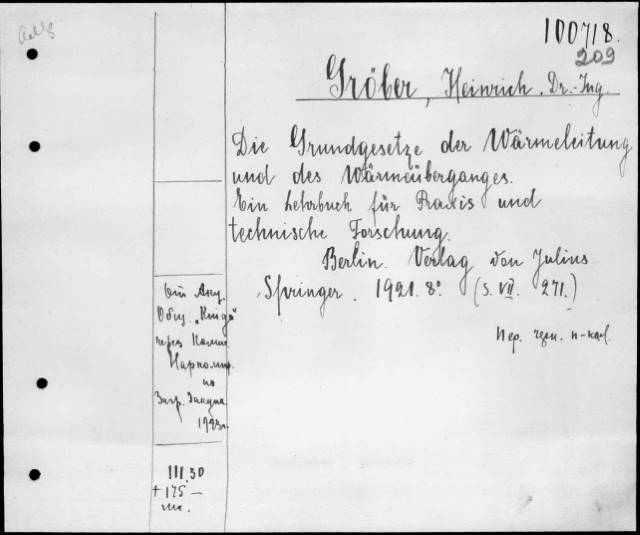 100718.
209
Gröber, Heinrich. Dr.-Ing.
Die Grundgesetze der Wärmeleitung
und des Wärmeüberganges.
Ein Lehrbuch für Praxis und
technische Forschung.
Berlin. Verlag von Julius
Springer. 1921. 8°. (S. VII. 271.)
От Акц.
Общ. „Книга"
через Комис.
по
Загр. Закупк.
1923г.
111.30
+ 175 —